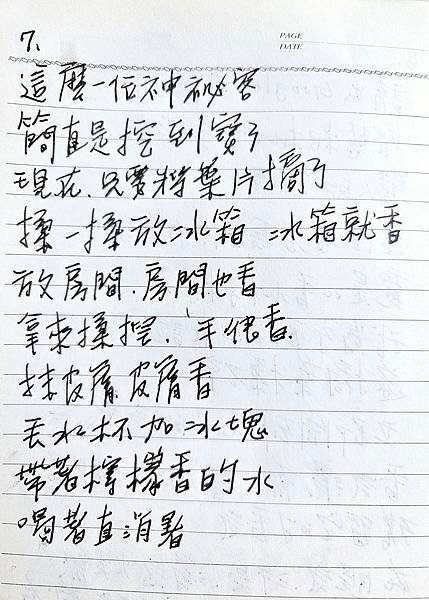 7、
PAGE
DATE
這麼一位神祕客
簡直是挖到寶了
現在、只要將葉片摘了
揉一揉放冰箱 冰箱就香
放房間、房間也香
拿來揉捏、手很香、
抹皮膚、皮膚香
丟水杯加冰塊
帶著檸檬香的水
喝著直消暑